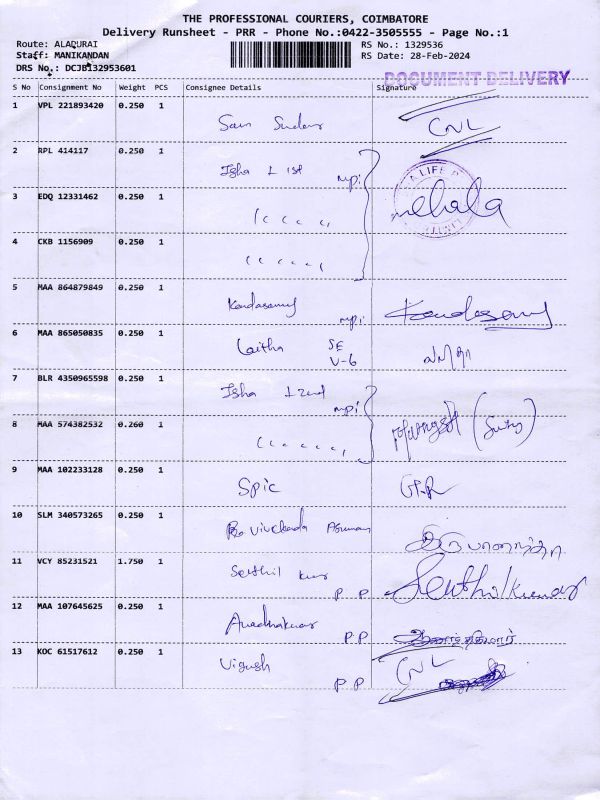 THE PROFESSIONAL COURIERS, COIMBATORE
Delivery Runsheet - PRR - Phone No.:0422-3505555 - Page No.:1
Route: ALADURAI RS No.: 1329536
Staff: MANIKANDAN RS Date: 28-Feb-2024
DRS No.: DCJB132953601
DOCUMENT DELIVERY
S No Consignment No Weight PCS Consignee Details Signature
1 VPL 221893420 0.250 1
CNL
2 RPL 414117 0.250 1
Isha L 1st mpi
LIFE
3 EDQ 12331462 0.250 1
mehala
4 CKB 1156909 0.250 1
5 MAA 864879849 0.250 1
Kandasamy mpi Kandasamy
6 MAA 865050835 0.250 1
Laitha SE
V-6
7 BLR 4350965598 0.250 1
Isha L 2nd mpi
8 MAA 574382532 0.260 1
9 MAA 102233128 0.250 1
Spic
10 SLM 340573265 0.250 1
11 VCY 85231521 1.750 1
Senthil kumar P P Senthilkumar
12 MAA 107645625 0.250 1
P P
13 KOC 61517612 0.250 1
Vignesh P P CNL